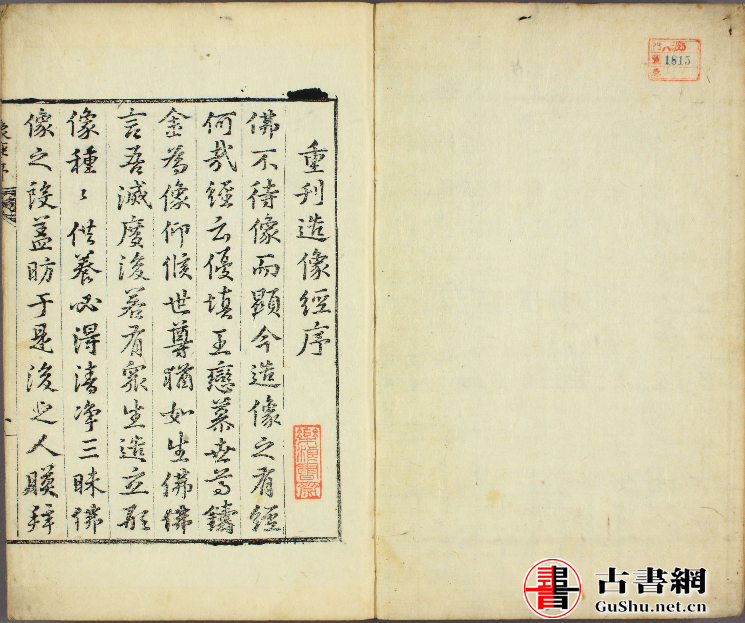 重刊造像經序
佛不待像而顯今造像之有經
何哉經云優填王戀慕世尊鑄
金為像仰候世尊猶如生佛佛
言吾滅度後若有眾生造立形
像種〻供養必得清净三昧佛
像之設盖昉于是後之人瞻拜
1815
古書網
GuShu.net.cn